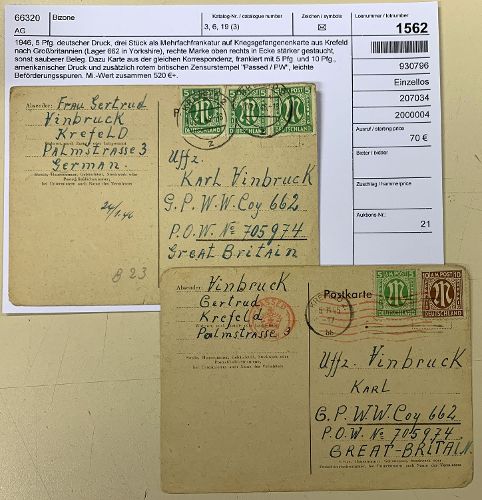 66320
Bizone
Katalog-Nr. / catalogue number
Zeichen / symbols
Losnummer / lotnumber
AG
3, 6, 19 (3)
1562
1946, 5 Pfg. deutscher Druck, drei Stück als Mehrfachfrankatur auf Kriegsgefangenenkarte aus Krefeld
nach Großbritannien (Lager 662 in Yorkshire), rechte Marke oben rechts in Ecke stärker gestaucht,
sonst sauberer Beleg. Dazu Karte aus der gleichen Korrespondenz, frankiert mit 5 Pfg. und 10 Pfg.,
amerikanischer Druck und zusätzlich rotem britischen Zensurstempel "Passed / PW", leichte
Beförderungsspuren. Mi.-Wert zusammen 520 €+.
930796
Einzellos
207034
2000004
Ausruf / starting price
70 €
Bieter / bidder
Zuschlag / hammerprice
Auktions-Nr.
21
Absender: Frau Gertrud
Vinbruck
Krefeld
Palmstrasse 3
German.
24/1.46
B 23
5 5
DEUTSCHLAND
5 5
DEUTSCHLAND
DEUTSCHLAND
Uffz.
Karl Vinbruck
G.P.W.W.Coy 662
P.O.W. No 705974
Great Britain
Absender: Vinbruck
Gertrud
Krefeld
Palmstrasse 3
Postkarte
5 AM. POST 5
DEUTSCHLAND
10 AM. POST 10
DEUTSCHLAND
Uffz. Vinbruck
Karl
G.P.W.W. Coy 662
P.O.W. No 705974
GREAT-BRITAIN.